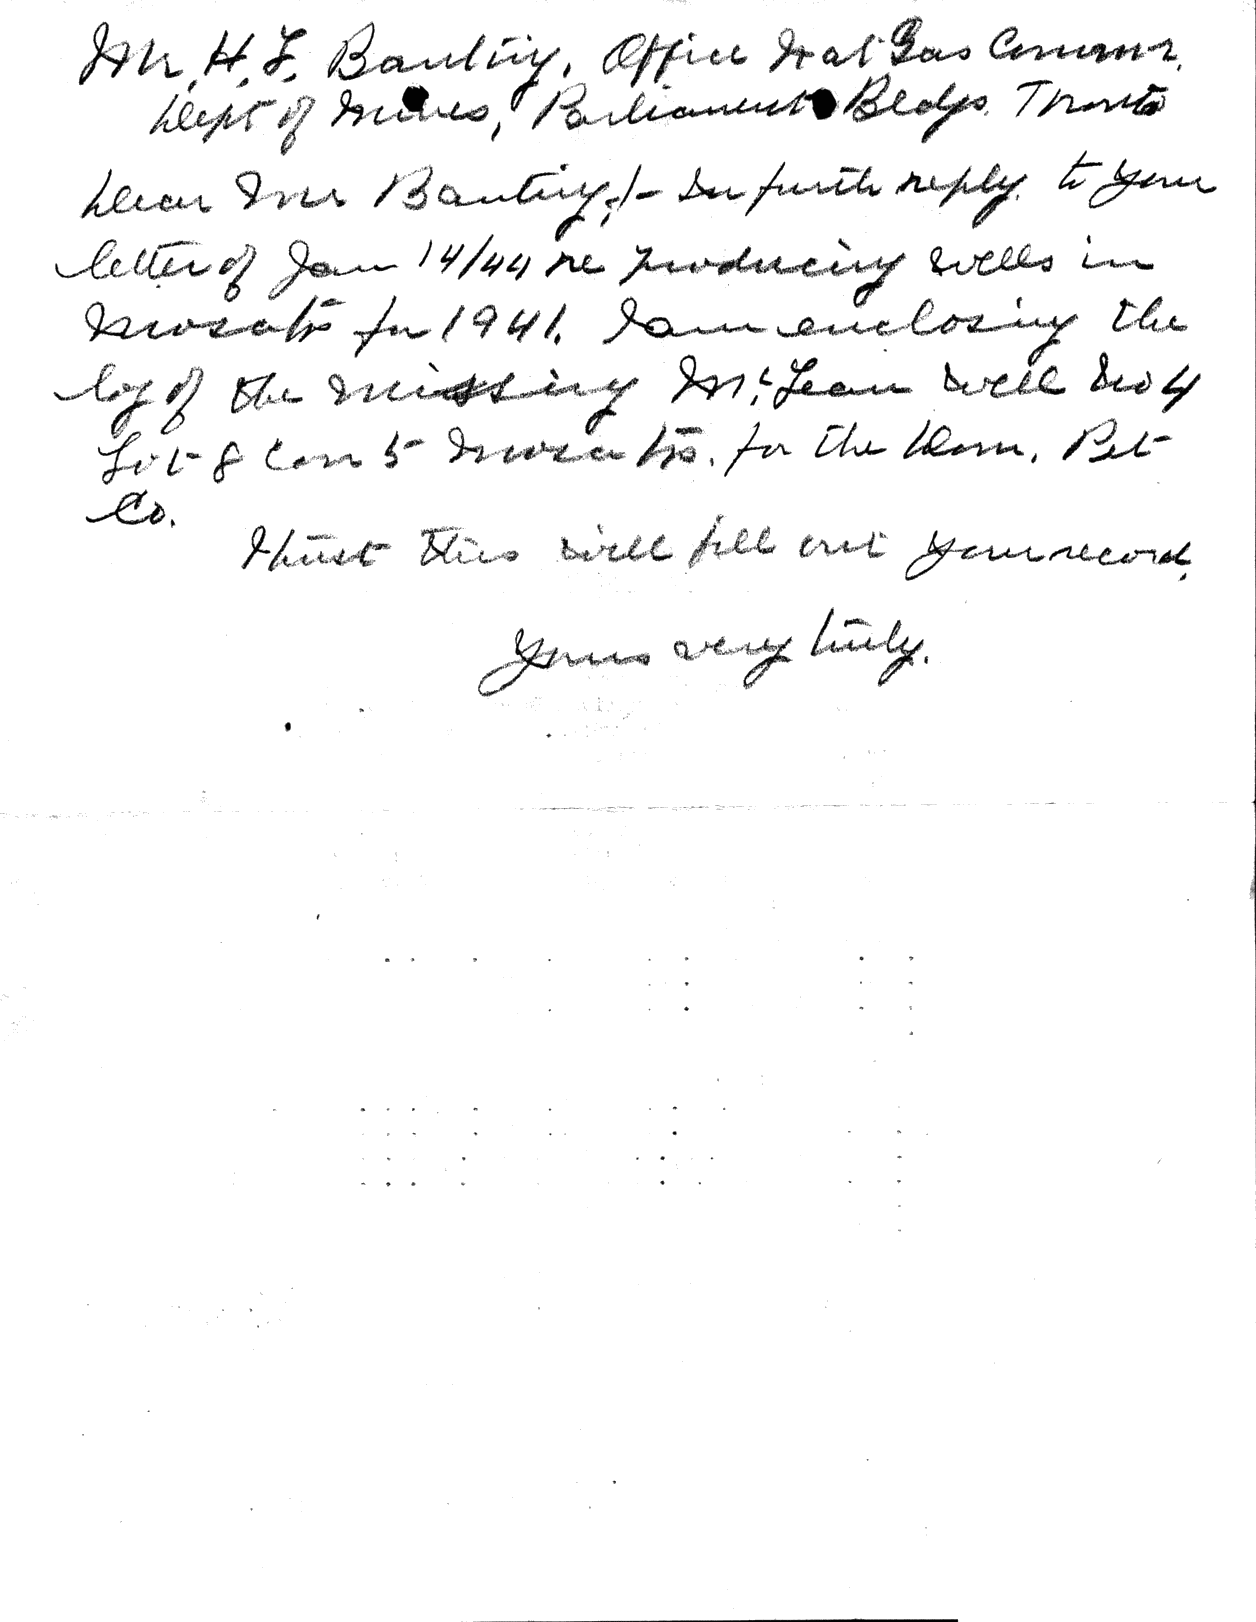 Mr. H. F. Banting, Office Nat Gas Commr.
Dept of Mines, Parliament Bldgs. Toronto
Dear Mr Banting,:- In furth reply to your
letter of Jan 14/44 re producing wells in
Mosa tp for 1941. I am enclosing the
log of the missing Mc Lean well No 4
Lot 8 Con 5 Mosa tp. for the Dom. Pet
Co.
I trust this will fill out your record.
Yours very truly.